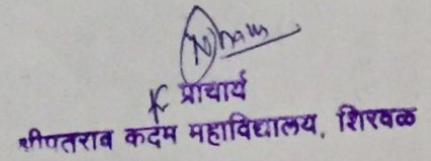 प्राचार्य
श्रीपतराव कदम महाविद्यालय, शिरवळ